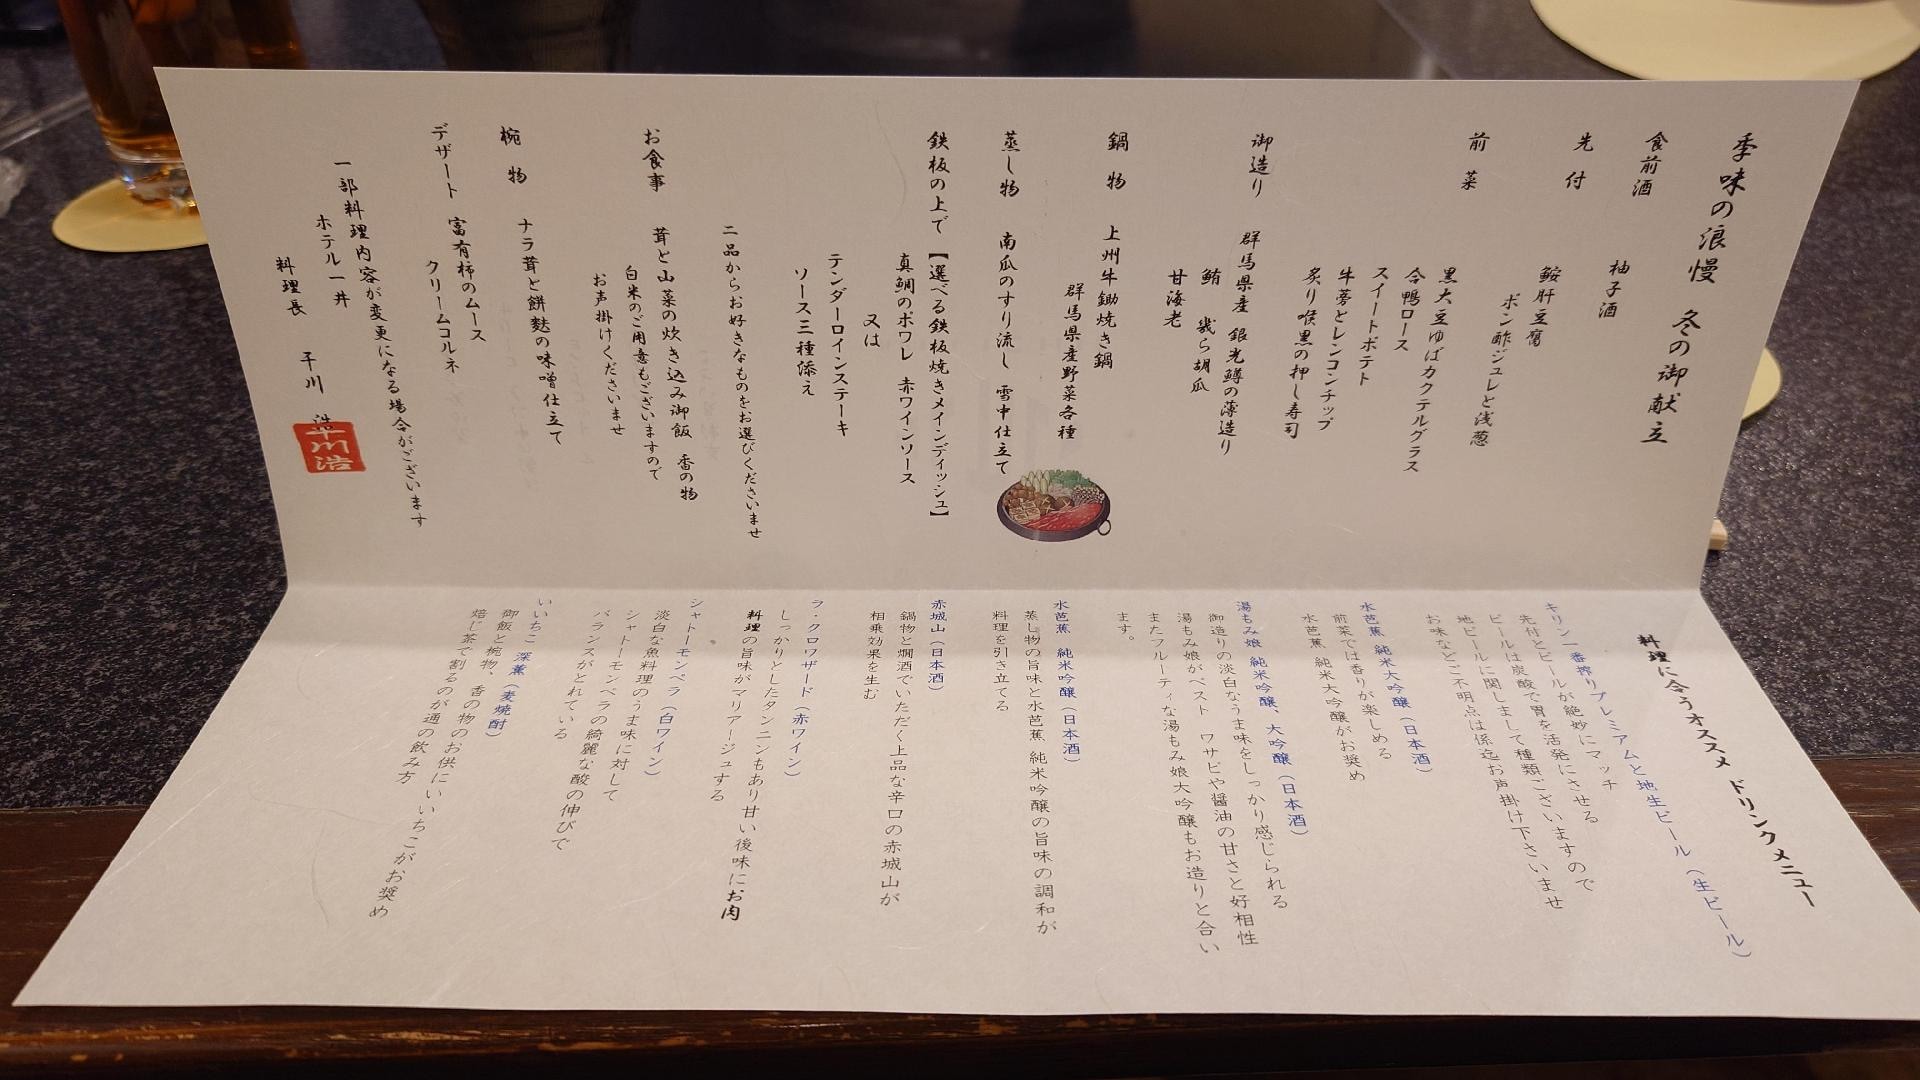 季味の浪慢 冬の御献立
食前酒 柚子酒
先付 鮟肝豆腐
ポン酢ジュレと浅葱
前菜 黒大豆ゆばカクテルグラス
合鴨ロース
スイートポテト
牛蒡とレンコンチップ
炙り喉黒の押し寿司
御造り 群馬県産 銀光鱒の薄造り
鮪 幾ら胡瓜
甘海老
鍋物 上州牛鋤焼き鍋
群馬県産野菜各種
蒸し物 南瓜のすり流し 雪中仕立て
鉄板の上で 【選べる鉄板焼きメインディッシュ】
真鯛のポワレ 赤ワインソース
又は
テンダーロインステーキ
ソース三種添え
二品からお好きなものをお選びくださいませ
お食事 茸と山菜の炊き込み御飯 香の物
白米のご用意もございますので
お声掛けくださいませ
椀物 ナラ茸と餅麩の味噌仕立て
デザート 富有柿のムース
クリームコルネ
一部料理内容が変更になる場合がございます
ホテル一井
料理長 平川 浩
平川浩
料理に合うオススメ ドリンクメニュー
キリン一番搾りプレミアムと地生ビール（生ビール）
先付とビールが絶妙にマッチ
ビールは炭酸で胃を活発にさせる
地ビールに関しまして種類ございますので
お味などご不明点は係迄お声掛け下さいませ
水芭蕉 純米大吟醸（日本酒）
前菜では香りが楽しめる
水芭蕉 純米大吟醸がお奨め
湯もみ娘 純米吟醸、大吟醸（日本酒）
御造りの淡白なうま味をしっかり感じられる
湯もみ娘がベスト ワサビや醤油の甘さと好相性
またフルーティな湯もみ娘大吟醸もお造りと合い
ます。
水芭蕉 純米吟醸（日本酒）
蒸し物の旨味と水芭蕉 純米吟醸の旨味の調和が
料理を引き立てる
赤城山（日本酒）
鍋物と燗酒でいただく上品な辛口の赤城山が
相乗効果を生む
ラ・クロワザード（赤ワイン）
しっかりとしたタンニンもあり甘い後味にお肉
料理の旨味がマリアージュする
シャトーモンペラ（白ワイン）
淡白な魚料理のうま味に対して
シャトーモンペラの綺麗な酸の伸びで
バランスがとれている
いいちこ 深薫（麦焼酎）
御飯と椀物、香の物のお供にいいちこがお奨め
焙じ茶で割るのが通の飲み方